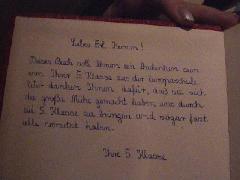 Liebes Frl.
Dieses Buch soll Ihnen ein Andenken
von Ihrer 5. Klasse aus der Europaschule
Wir danken Ihnen dafür, daß sie sich
die große Mühe gemacht haben uns durch
die 5. Klasse zu bringen und sogar fast
alle haben.
Ihre 5. Klasse